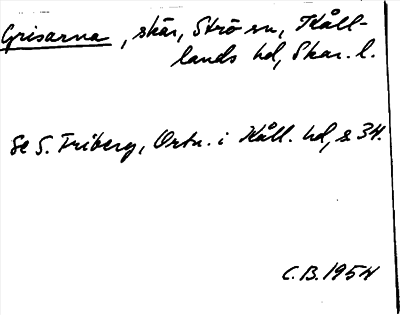 Grisarna, skär, Strö sn, Kåll-
lands hd, Skar. l.
Se S. Friberg, Ortn. i Kåll. hd, s 34.
C.B. 1954